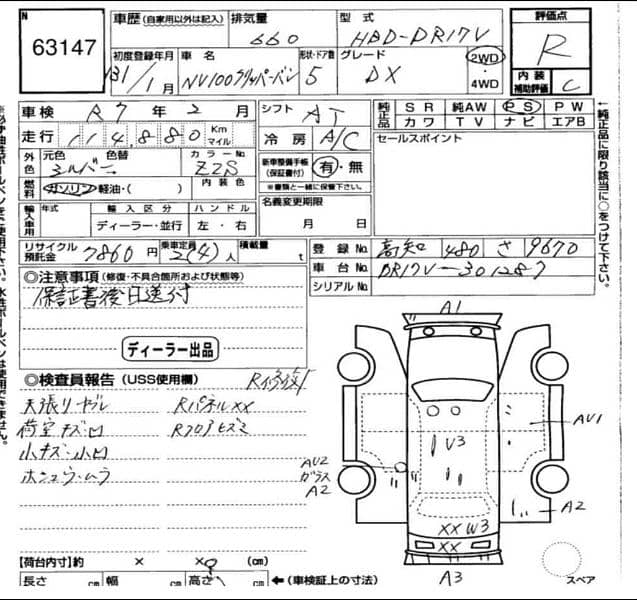 N
63147
車歴 (自家用以外は記入) 排気量 型式
660 HBD-DR17V
初度登録年月 車名 形状・ドア数 グレード
31/1月 NV100クリッパーバン 5 DX
2WD
・
4WD
評価点
R
内装
補助評価 C
車検 R7年 2月
走行 114,880 Km マイル
外色 元色 色替 カラーNo.
シルバー Z2S
燃料 ガソリン・軽油・( ) 内装色
輸入車用 年式 輸入区分 ハンドル
ディーラー・並行 左・右
シフト AT
冷房 A/C
新車整備手帳
(保証書付) 有・無
※書類と一緒に保管下さい。
名義変更期限
月 日
純正品 SR 純AW PS PW
カワ TV ナビ エアB
セールスポイント
←純正品に限り該当に○をつけて下さい。
リサイクル預託金 7860円 乗車定員 2(4)人 積載量 t
登録No. 高知 480 さ 9670
車台No. DR17V-301287
シリアルNo.
◎注意事項 (修復・不具合箇所および状態等)
保証書後日送付
ディーラー出品
◎検査員報告 (USS使用欄) R修復
天張リヤブレ RパネルXX
荷室キズ凹 Rフロアヒズミ
小キズ小凹
ホシュウムラ
A1
AU1
V3
AU2
ガラス
A2
A2
XX W3
XX
A3
スペア
【荷台内寸】約 × × (cm)
長さ cm 幅 cm 高さ cm ←(車検証上の寸法)